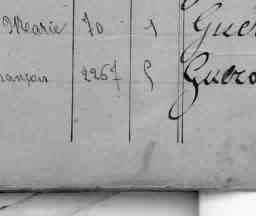 Marie 70 1 Guer
rançois 2267 5 Guero